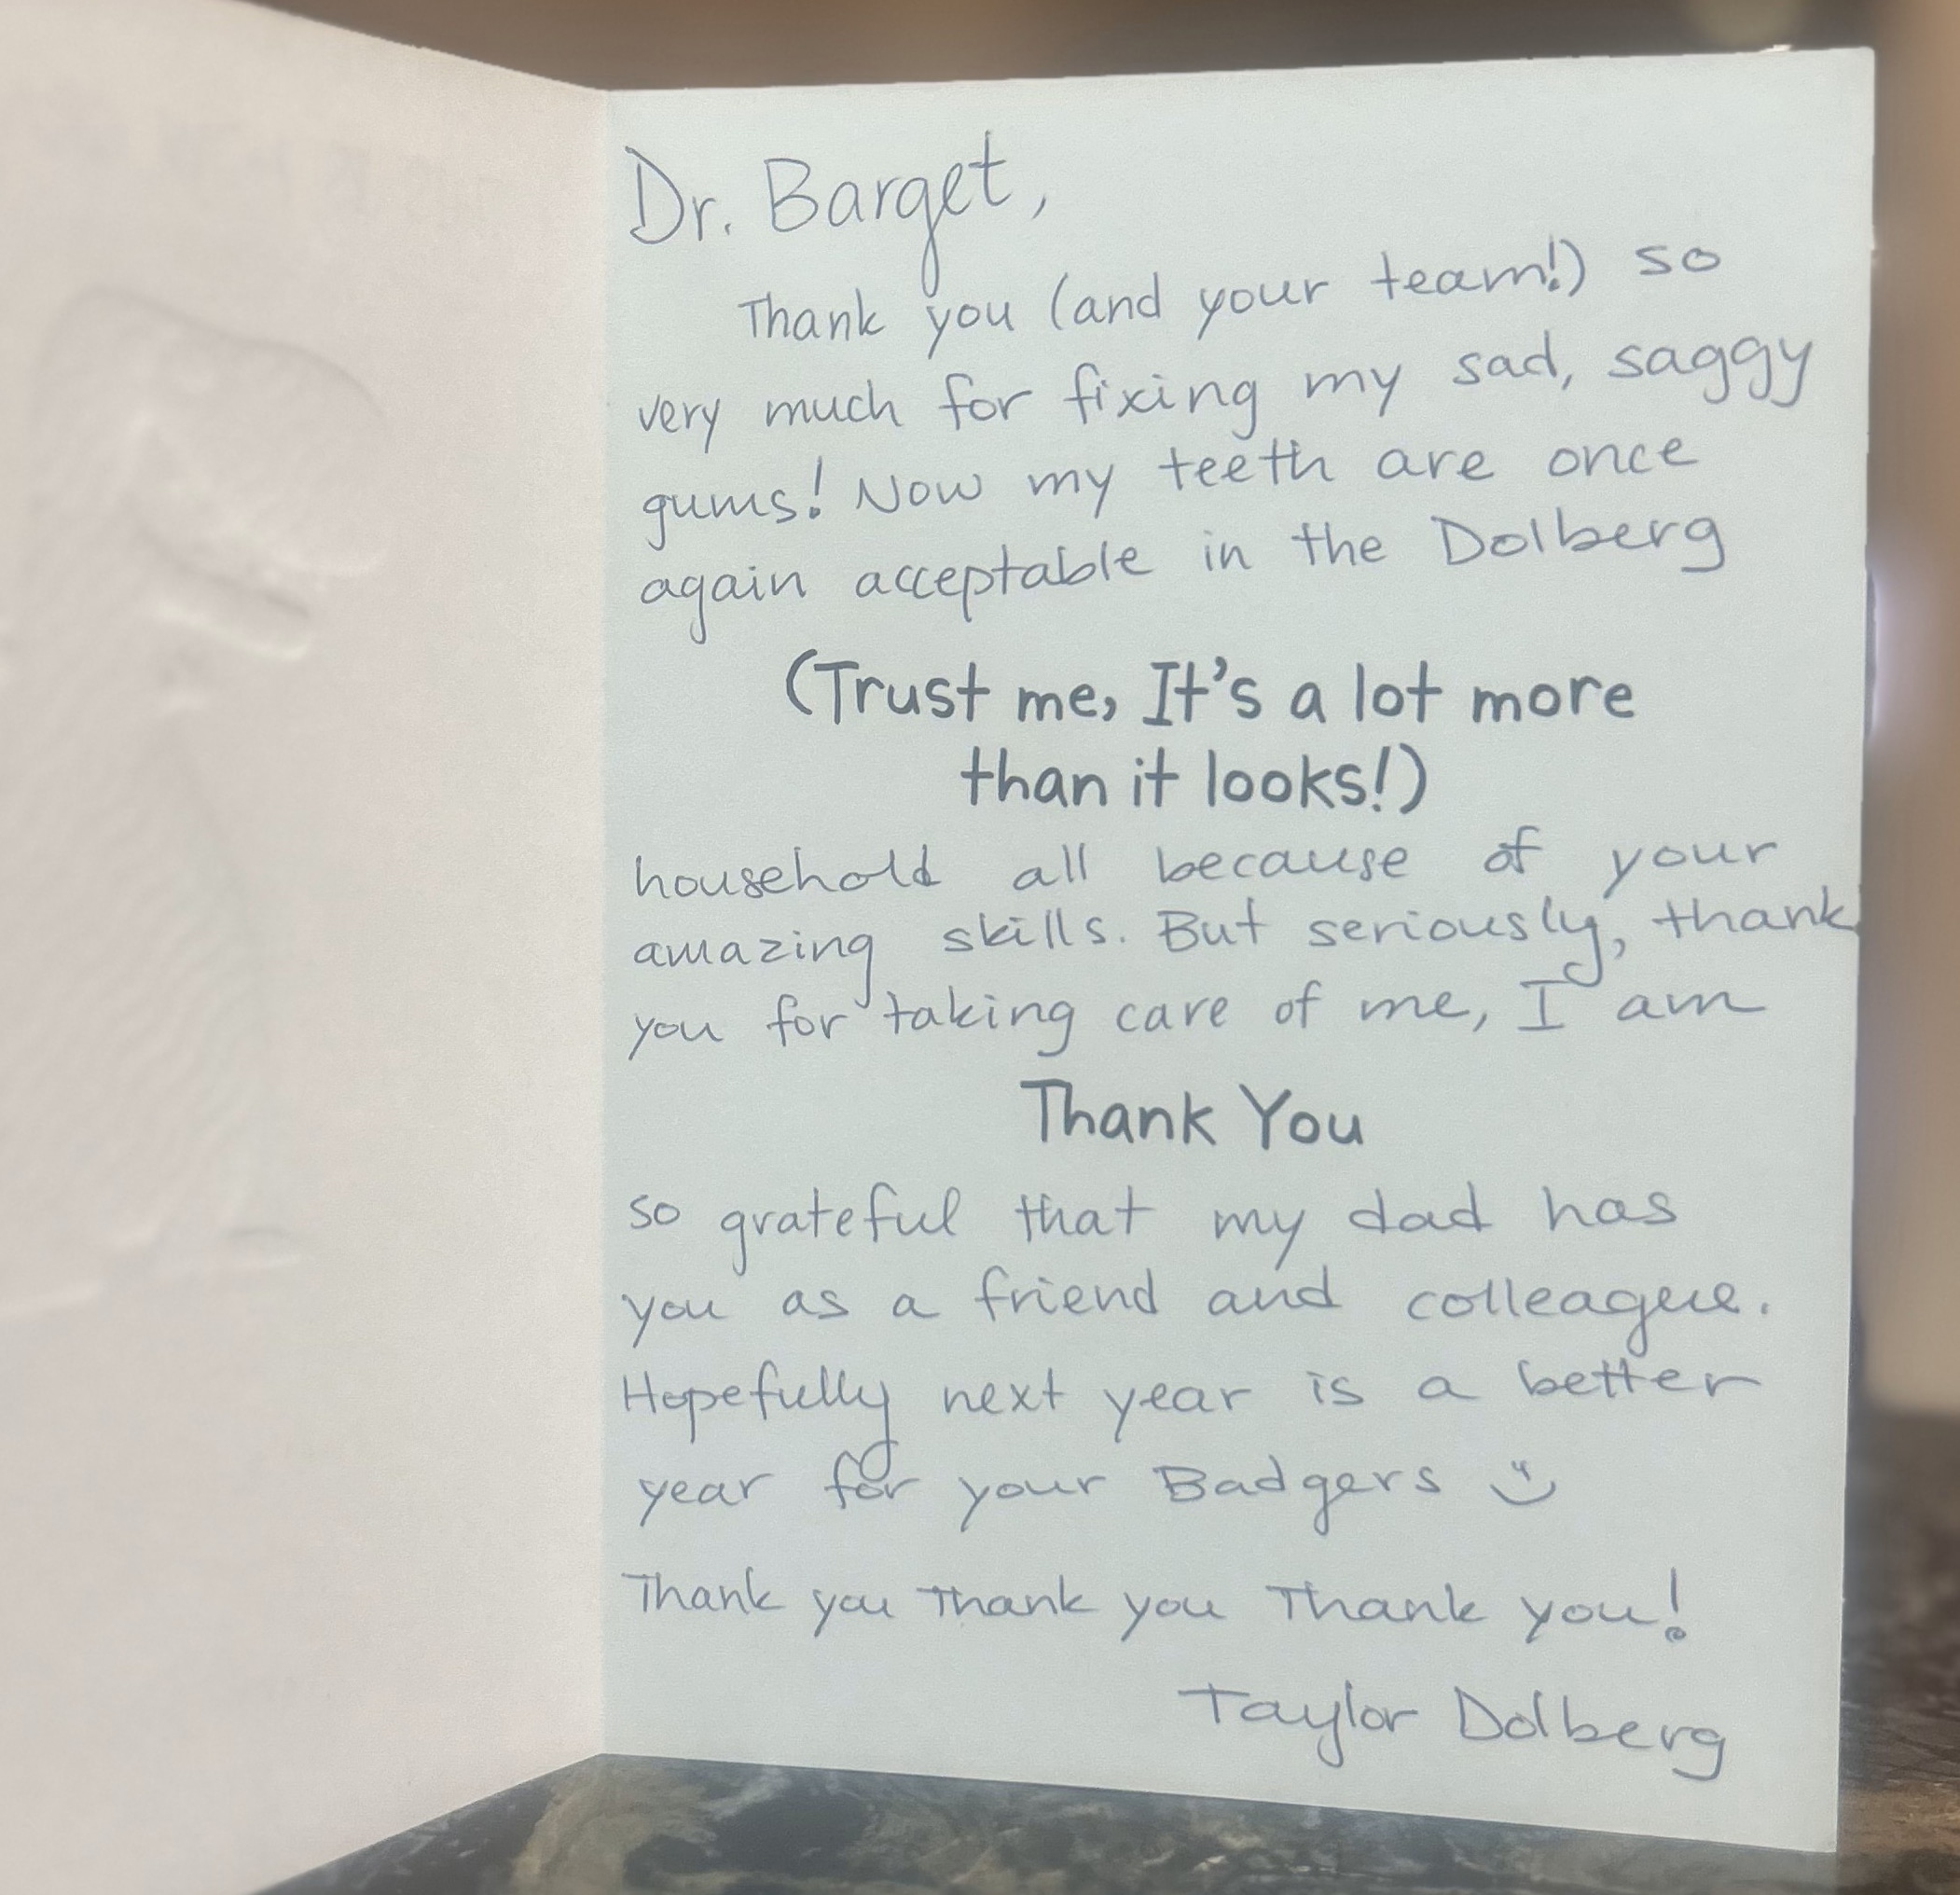 Dr. Barget,
Thank you (and your team!) so
very much for fixing my sad, saggy
gums! Now my teeth are once
again acceptable in the Dolberg
(Trust me, It's a lot more
than it looks!)
household all because of your
amazing skills. But seriously, thank
you for taking care of me, I am
Thank You
so grateful that my dad has
you as a friend and colleague.
Hopefully next year is a better
year for your Badgers :)
Thank you Thank you Thank you!
Taylor Dolberg